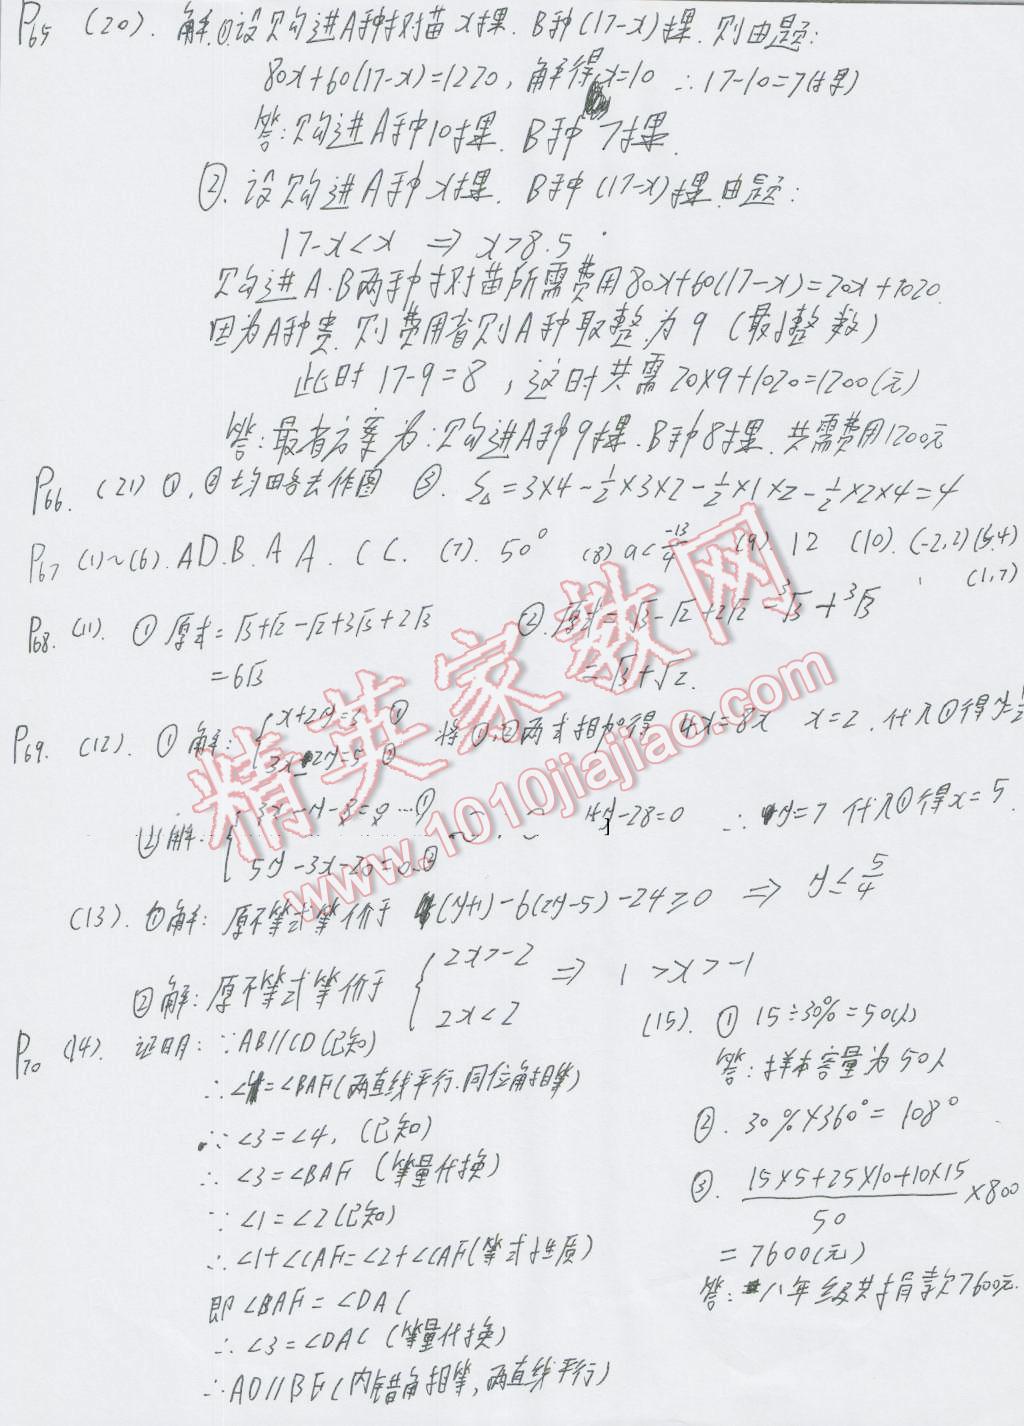 P65 (20). 解.①设购进A种树苗x棵. B种(17-x)棵. 则由题:
80x+60(17-x)=1220, 解得x=10 ∴17-10=7(棵)
答:购进A种10棵. B种7棵.
②. 设购进A种x棵. B种(17-x)棵.由题:
17-x<x ⇒ x>8.5
购进A.B两种树苗所需费用80x+60(17-x)=20x+1020.
因为A种贵.则费用省则A种取整为9 (最小整数)
此时 17-9=8 , 这时共需 20×9+1020=1200(元)
答:最省方案为:购进A种9棵.B种8棵.共需费用1200元
P66. (21) ①,②均略去作图 ③. S△=3×4-½×3×2-½×1×2-½×2×4=4
P67 (1)~(6).AD.B.AA.CC. (7). 50° (8) a<-13/4 (9). 12 (10). (-2,2)(5,4) (1,7)
P68. (11). ① 原式=√3+√2-√2+3√3+2√3 ②. 原式=√3-√2+2√2-³√3+³√3
=6√3 =√3+√2.
P69. (12). ① 解: x+2y=3 ① 3x-2y=5 ② 将①,②两式相加得 4x=8x x=2. 代入①得y=½
(2)解: 3x-y-8=0…① 5y-3x-20=0…② 4y-28=0 ∴y=7 代入①得x=5.
(13). ①解: 原不等式等价于 4(y+1)-6(2y-5)-24≥0 ⇒ y≤5/4
②解: 原不等式等价于 { 2x>-2 2x<2 ⇒ 1>x>-1
P70 (14). 证明: ∵AB//CD(已知)
∴∠4=∠BAF(两直线平行.同位角相等)
∵∠3=∠4, (已知)
∴∠3=∠BAF (等量代换)
∵∠1=∠2(已知)
∴∠1+∠CAF=∠2+∠CAF(等式性质)
即∠BAF=∠DAC
∴∠3=∠DAC (等量代换)
∴AD//BE(内错角相等,两直线平行)
(15). ① 15÷30%=50(人)
答:样本容量为50人
②. 30%×360°=108°
③. (15×5+25×10+10×15)/50 ×800
=7600(元)
答:八年级共捐款7600元.
精英家教网
www.1010jiajiao.com